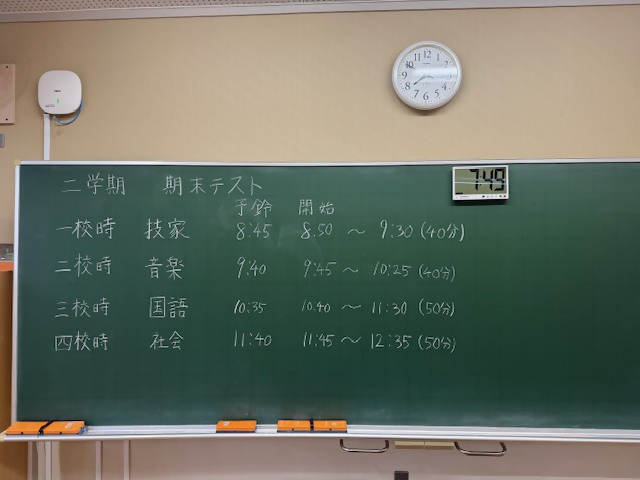 12
11
1
10
2
9
3
8
4
7
6
5
7:49
二学期 期末テスト
予鈴 開始
一校時 技家 8:45 8:50 ～ 9:30 (40分)
二校時 音楽 9:40 9:45 ～ 10:25 (40分)
三校時 国語 10:35 10:40 ～ 11:30 (50分)
四校時 社会 11:40 11:45 ～ 12:35 (50分)